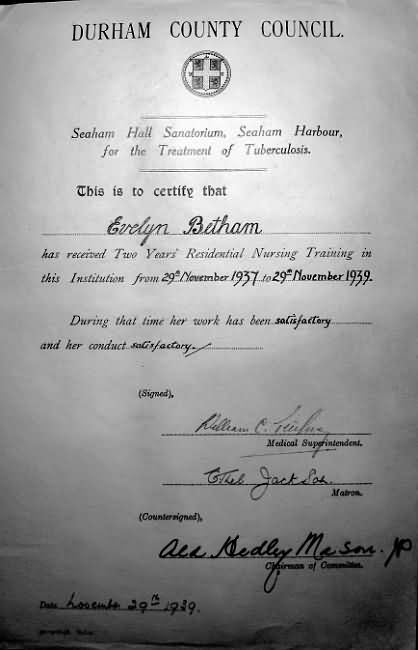 DURHAM COUNTY COUNCIL.
Seaham Hall Sanatorium, Seaham Harbour,
for the Treatment of Tuberculosis.
This is to certify that
Evelyn Betham
has received Two Years' Residential Nursing Training in
this Institution from 29th November 1937 to 29th November 1939.
During that time her work has been satisfactory
and her conduct satisfactory.
(Signed),
William C.
Medical Superintendent.
Ethel Jackson.
Matron.
(Countersigned),
Ald Hedley Mason. JP
Chairman of Committee.
Date November 29th 1939.